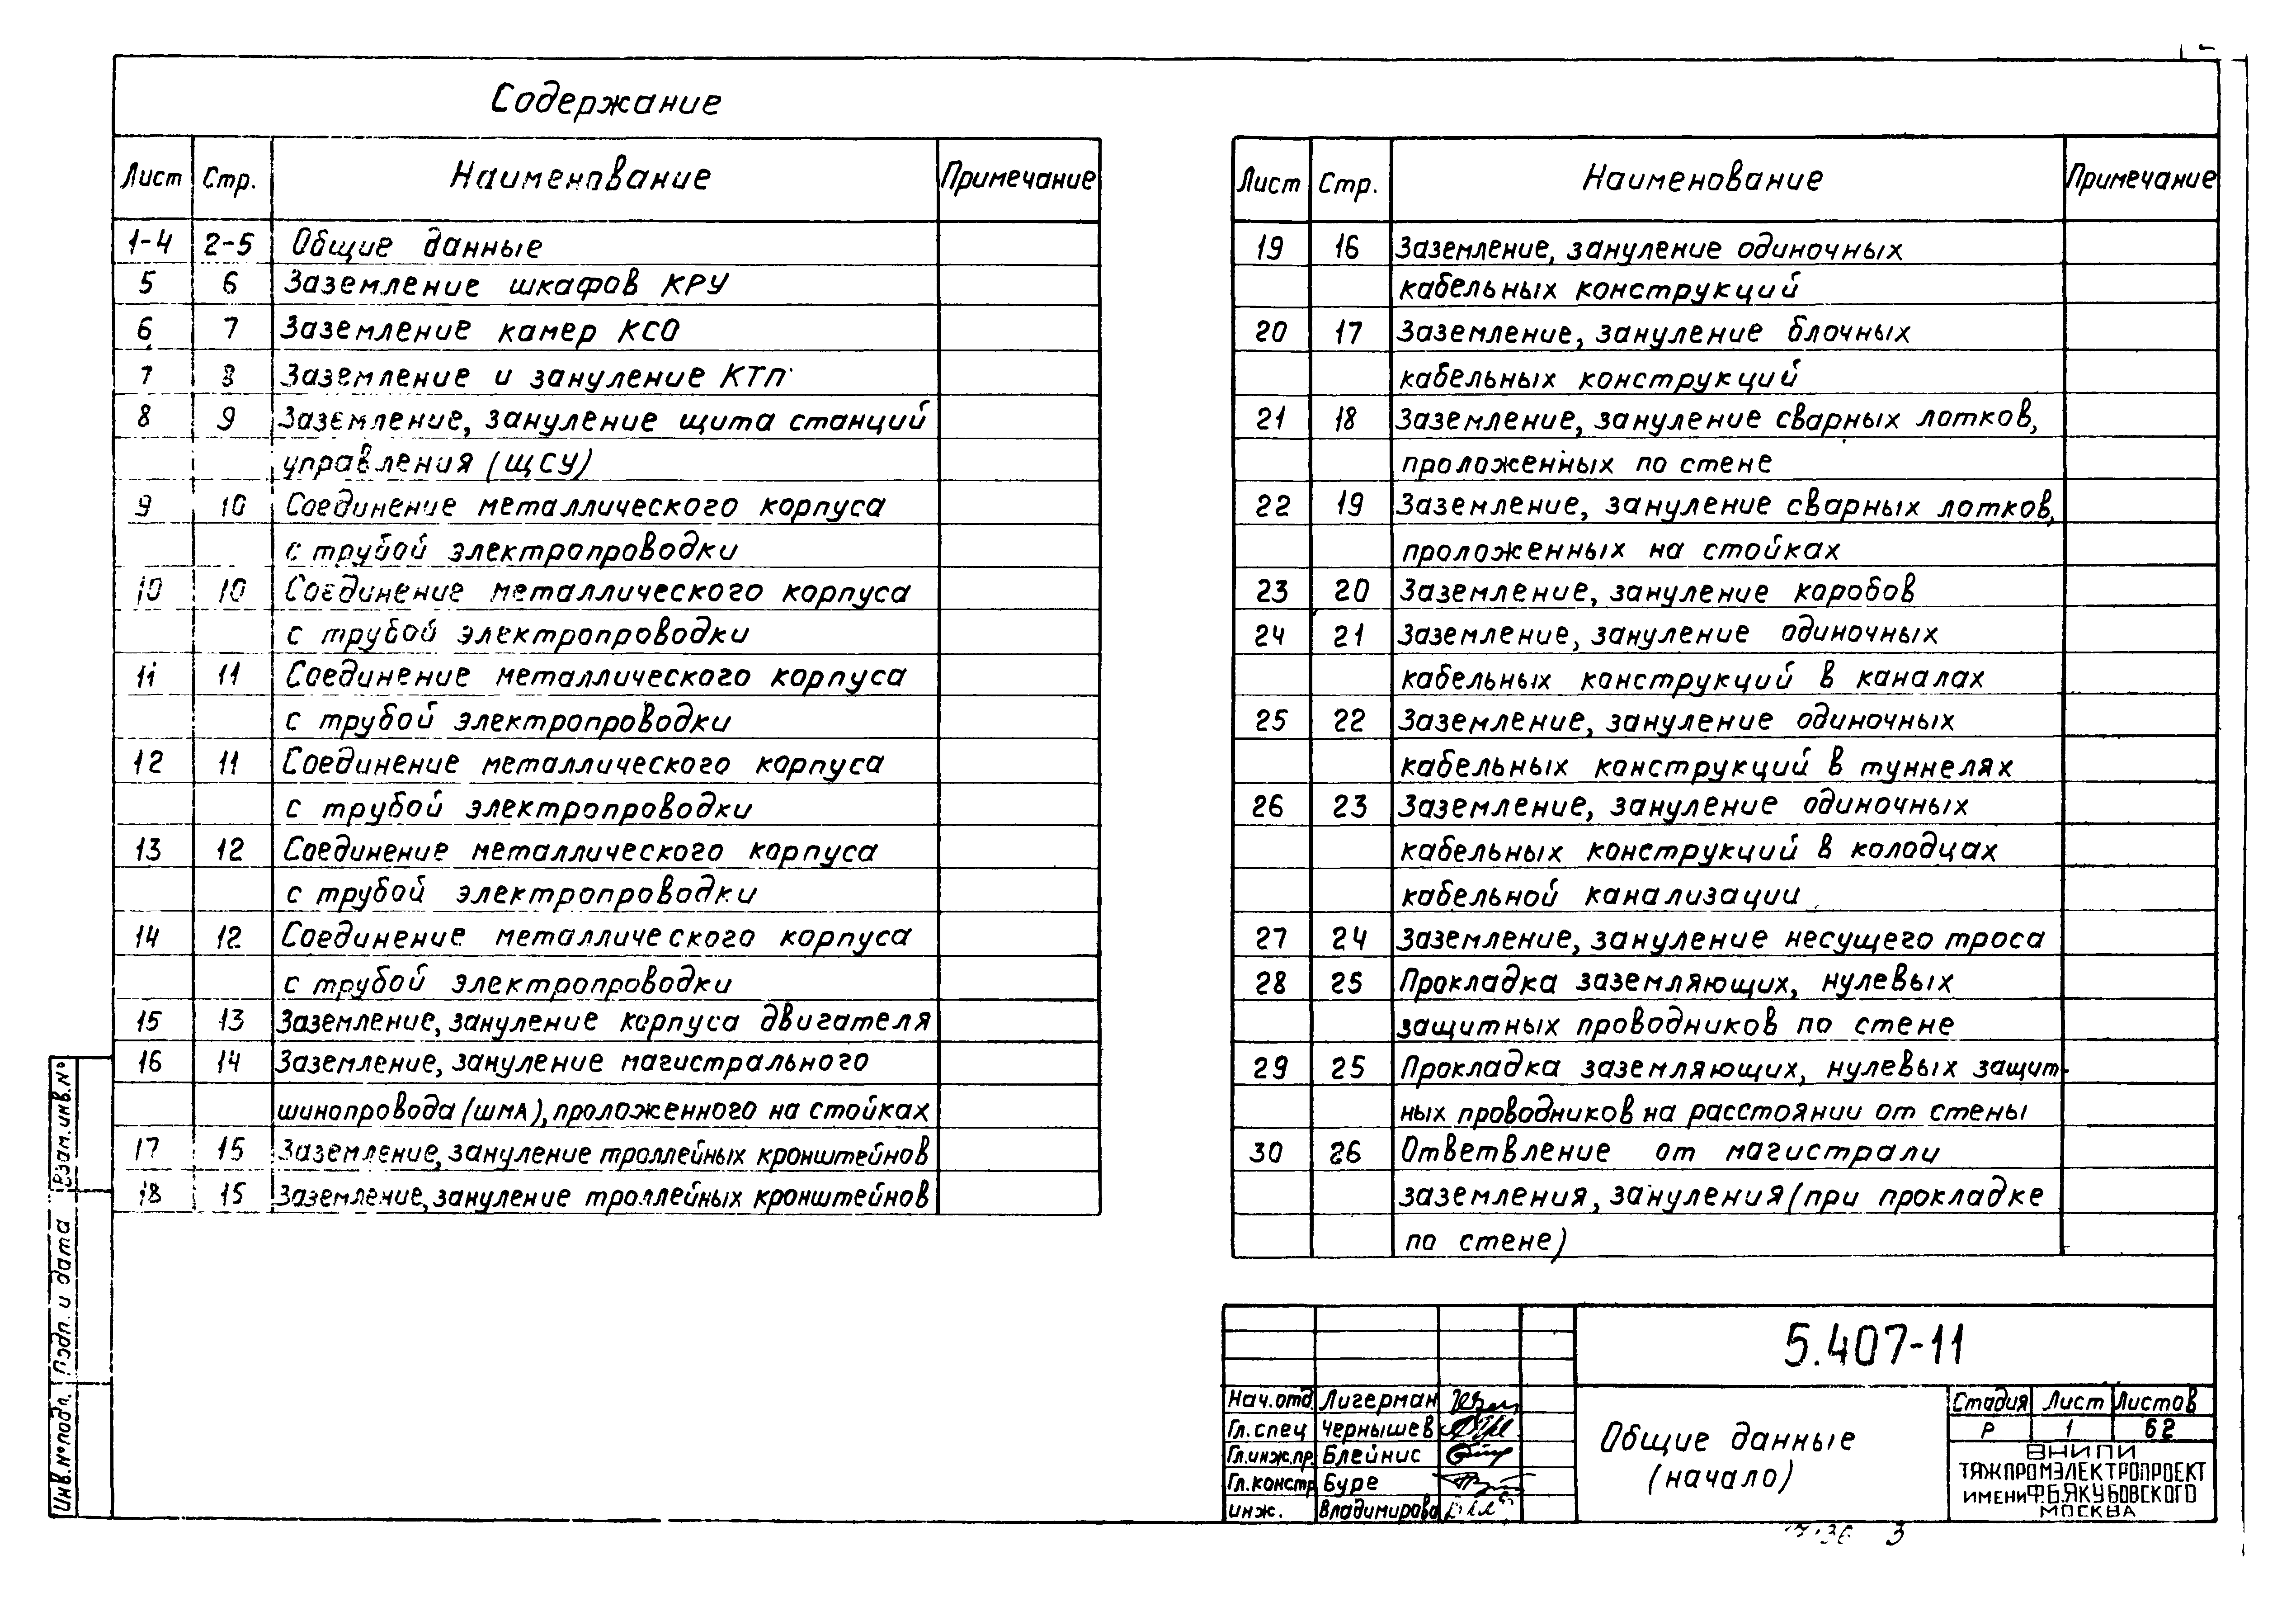 Содержание
Лист Стр. Наименование Примечание
1-4 2-5 Общие данные
5 6 Заземление шкафов КРУ
6 7 Заземление камер КСО
7 8 Заземление и зануление КТП
8 9 Заземление, зануление щита станций
управления (ЩСУ)
9 10 Соединение металлического корпуса
с трубой электропроводки
10 10 Соединение металлического корпуса
с трубой электропроводки
11 11 Соединение металлического корпуса
с трубой электропроводки
12 11 Соединение металлического корпуса
с трубой электропроводки
13 12 Соединение металлического корпуса
с трубой электропроводки
14 12 Соединение металлического корпуса
с трубой электропроводки
15 13 Заземление, зануление корпуса двигателя
16 14 Заземление, зануление магистрального
шинопровода (ШМА), проложенного на стойках
17 15 Заземление, зануление троллейных кронштейнов
18 15 Заземление, зануление троллейных кронштейнов
Лист Стр. Наименование Примечание
19 16 Заземление, зануление одиночных
кабельных конструкций
20 17 Заземление, зануление блочных
кабельных конструкций
21 18 Заземление, зануление сварных лотков,
проложенных по стене
22 19 Заземление, зануление сварных лотков,
проложенных на стойках
23 20 Заземление, зануление коробов
24 21 Заземление, зануление одиночных
кабельных конструкций в каналах
25 22 Заземление, зануление одиночных
кабельных конструкций в туннелях
26 23 Заземление, зануление одиночных
кабельных конструкций в колодцах
кабельной канализации
27 24 Заземление, зануление несущего троса
28 25 Прокладка заземляющих, нулевых
защитных проводников по стене
29 25 Прокладка заземляющих, нулевых защит-
ных проводников на расстоянии от стены
30 26 Ответвление от магистрали
заземления, зануления (при прокладке
по стене)
Взам.инв.№
Подп. и дата
Инв.№подл.
5.407-11
Нач.отд. Лигерман
Гл.спец Чернышев
Гл.инж.пр. Блейнис
Гл.констр Буре
инж. Владимирова
Общие данные
(начало)
Стадия Лист Листов
Р 1 62
ВНИПИ
ТЯЖПРОМЭЛЕКТРОПРОЕКТ
ИМЕНИ Ф.Б.ЯКУБОВСКОГО
МОСКВА
3